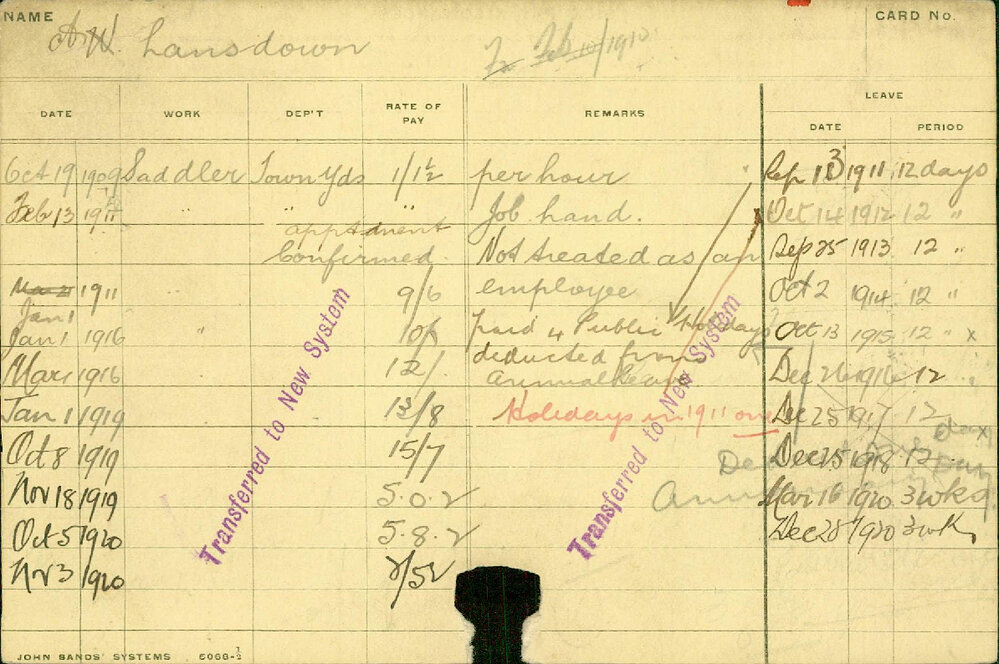 NAME
CARD No.
A.W. Lansdown
Feb 1910
LEAVE
DATE WORK DEP'T RATE OF PAY REMARKS DATE PERIOD
Oct 19 1909 Saddler Town Yds 1/1½ per hour Sep 13 1911 12 days
Feb 13 1911 " " Job hand. Oct 14 1912 12 "
appointment
Confirmed. Not treated as an Sep 25 1913 12 "
1911 9/6 employee Oct 2 1914 12 "
Jan 1
Jan 1 1916 " 10/ paid 4 Public Holidays Oct 13 1915 12 " x
Mar 1 1916 12/ deducted from Dec 26 1916 12 "
annual leave
Jan 1 1919 13/8 Holidays in 1911 one Dec 25 1917 12
day
Oct 8 1919 15/7 Dec 25 1918 12
Nov 18 1919 5.0.2 Mar 16 1920 3 wks
Oct 5 1920 5.8.2 Dec 28 1920 3 wks
Nov 3 1920
Transferred to New System
Transferred to New System
JOHN SANDS' SYSTEMS 6066-½